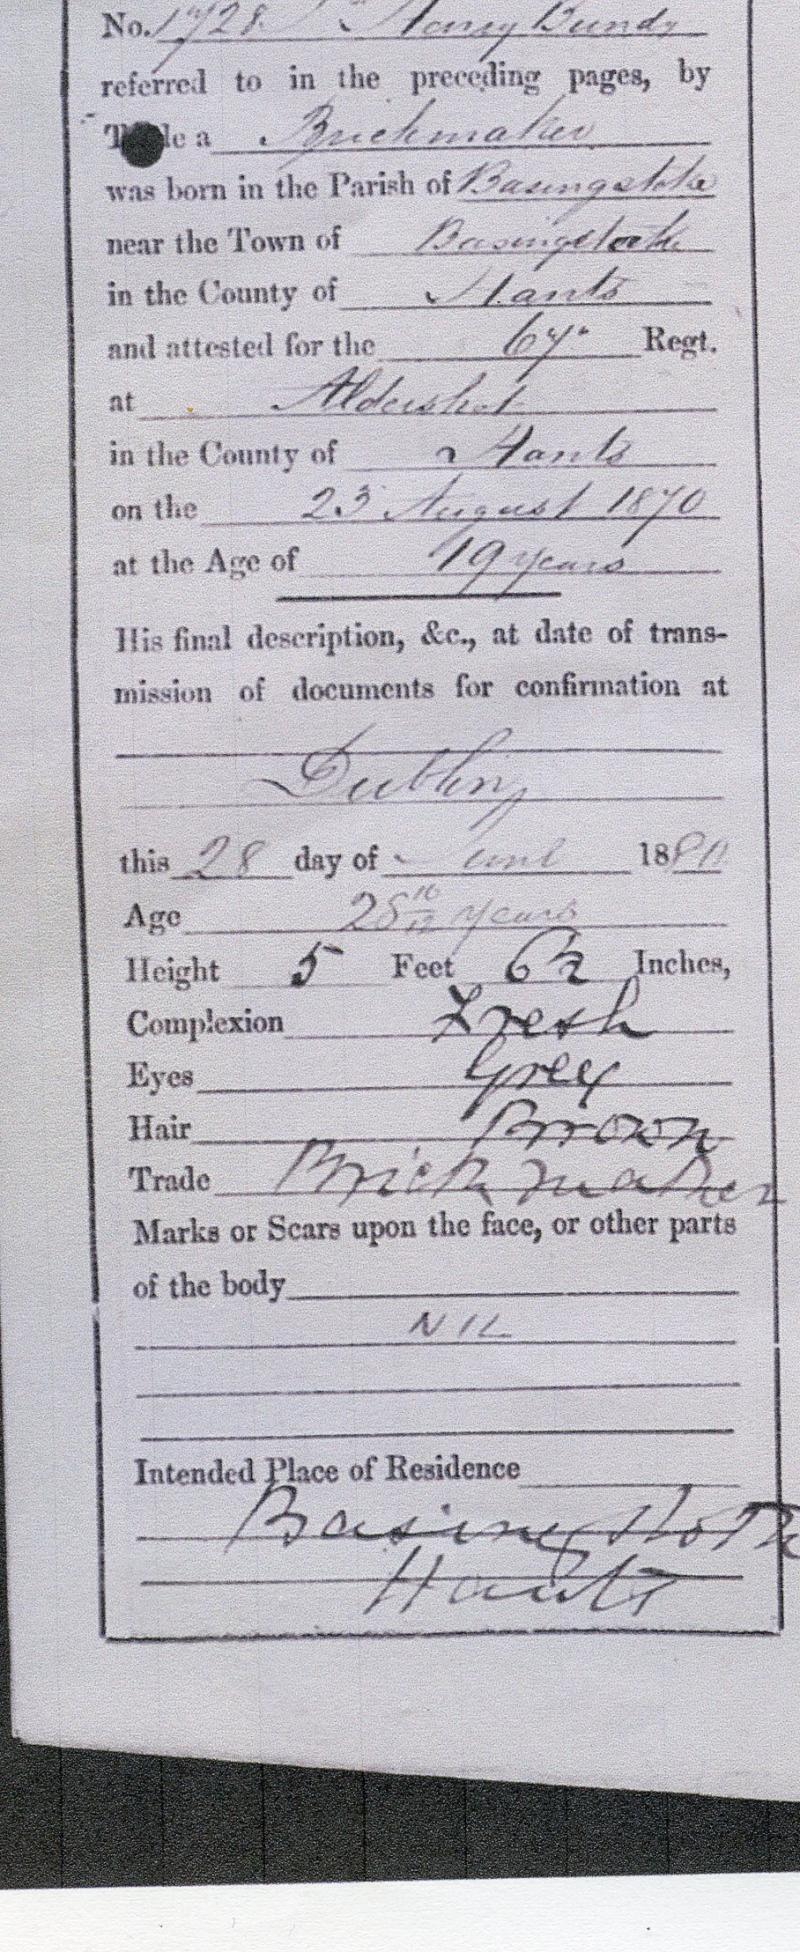 No. 1728 Henry Bundy
referred to in the preceding pages, by
T le a Brickmaker
was born in the Parish of Basingstoke
near the Town of Basingstoke
in the County of Hants
and attested for the 67" Regt.
at Aldershot
in the County of Hants
on the 23 August 1870
at the Age of 19 years
His final description, &c., at date of trans-
mission of documents for confirmation at
Dublin
this 28 day of June 1880
Age 28 10/12 years
Height 5 Feet 6½ Inches,
Complexion Fresh
Eyes Grey
Hair Brown
Trade Brickmaker
Marks or Scars upon the face, or other parts
of the body
NIL
Intended Place of Residence
Basingstoke
Hants